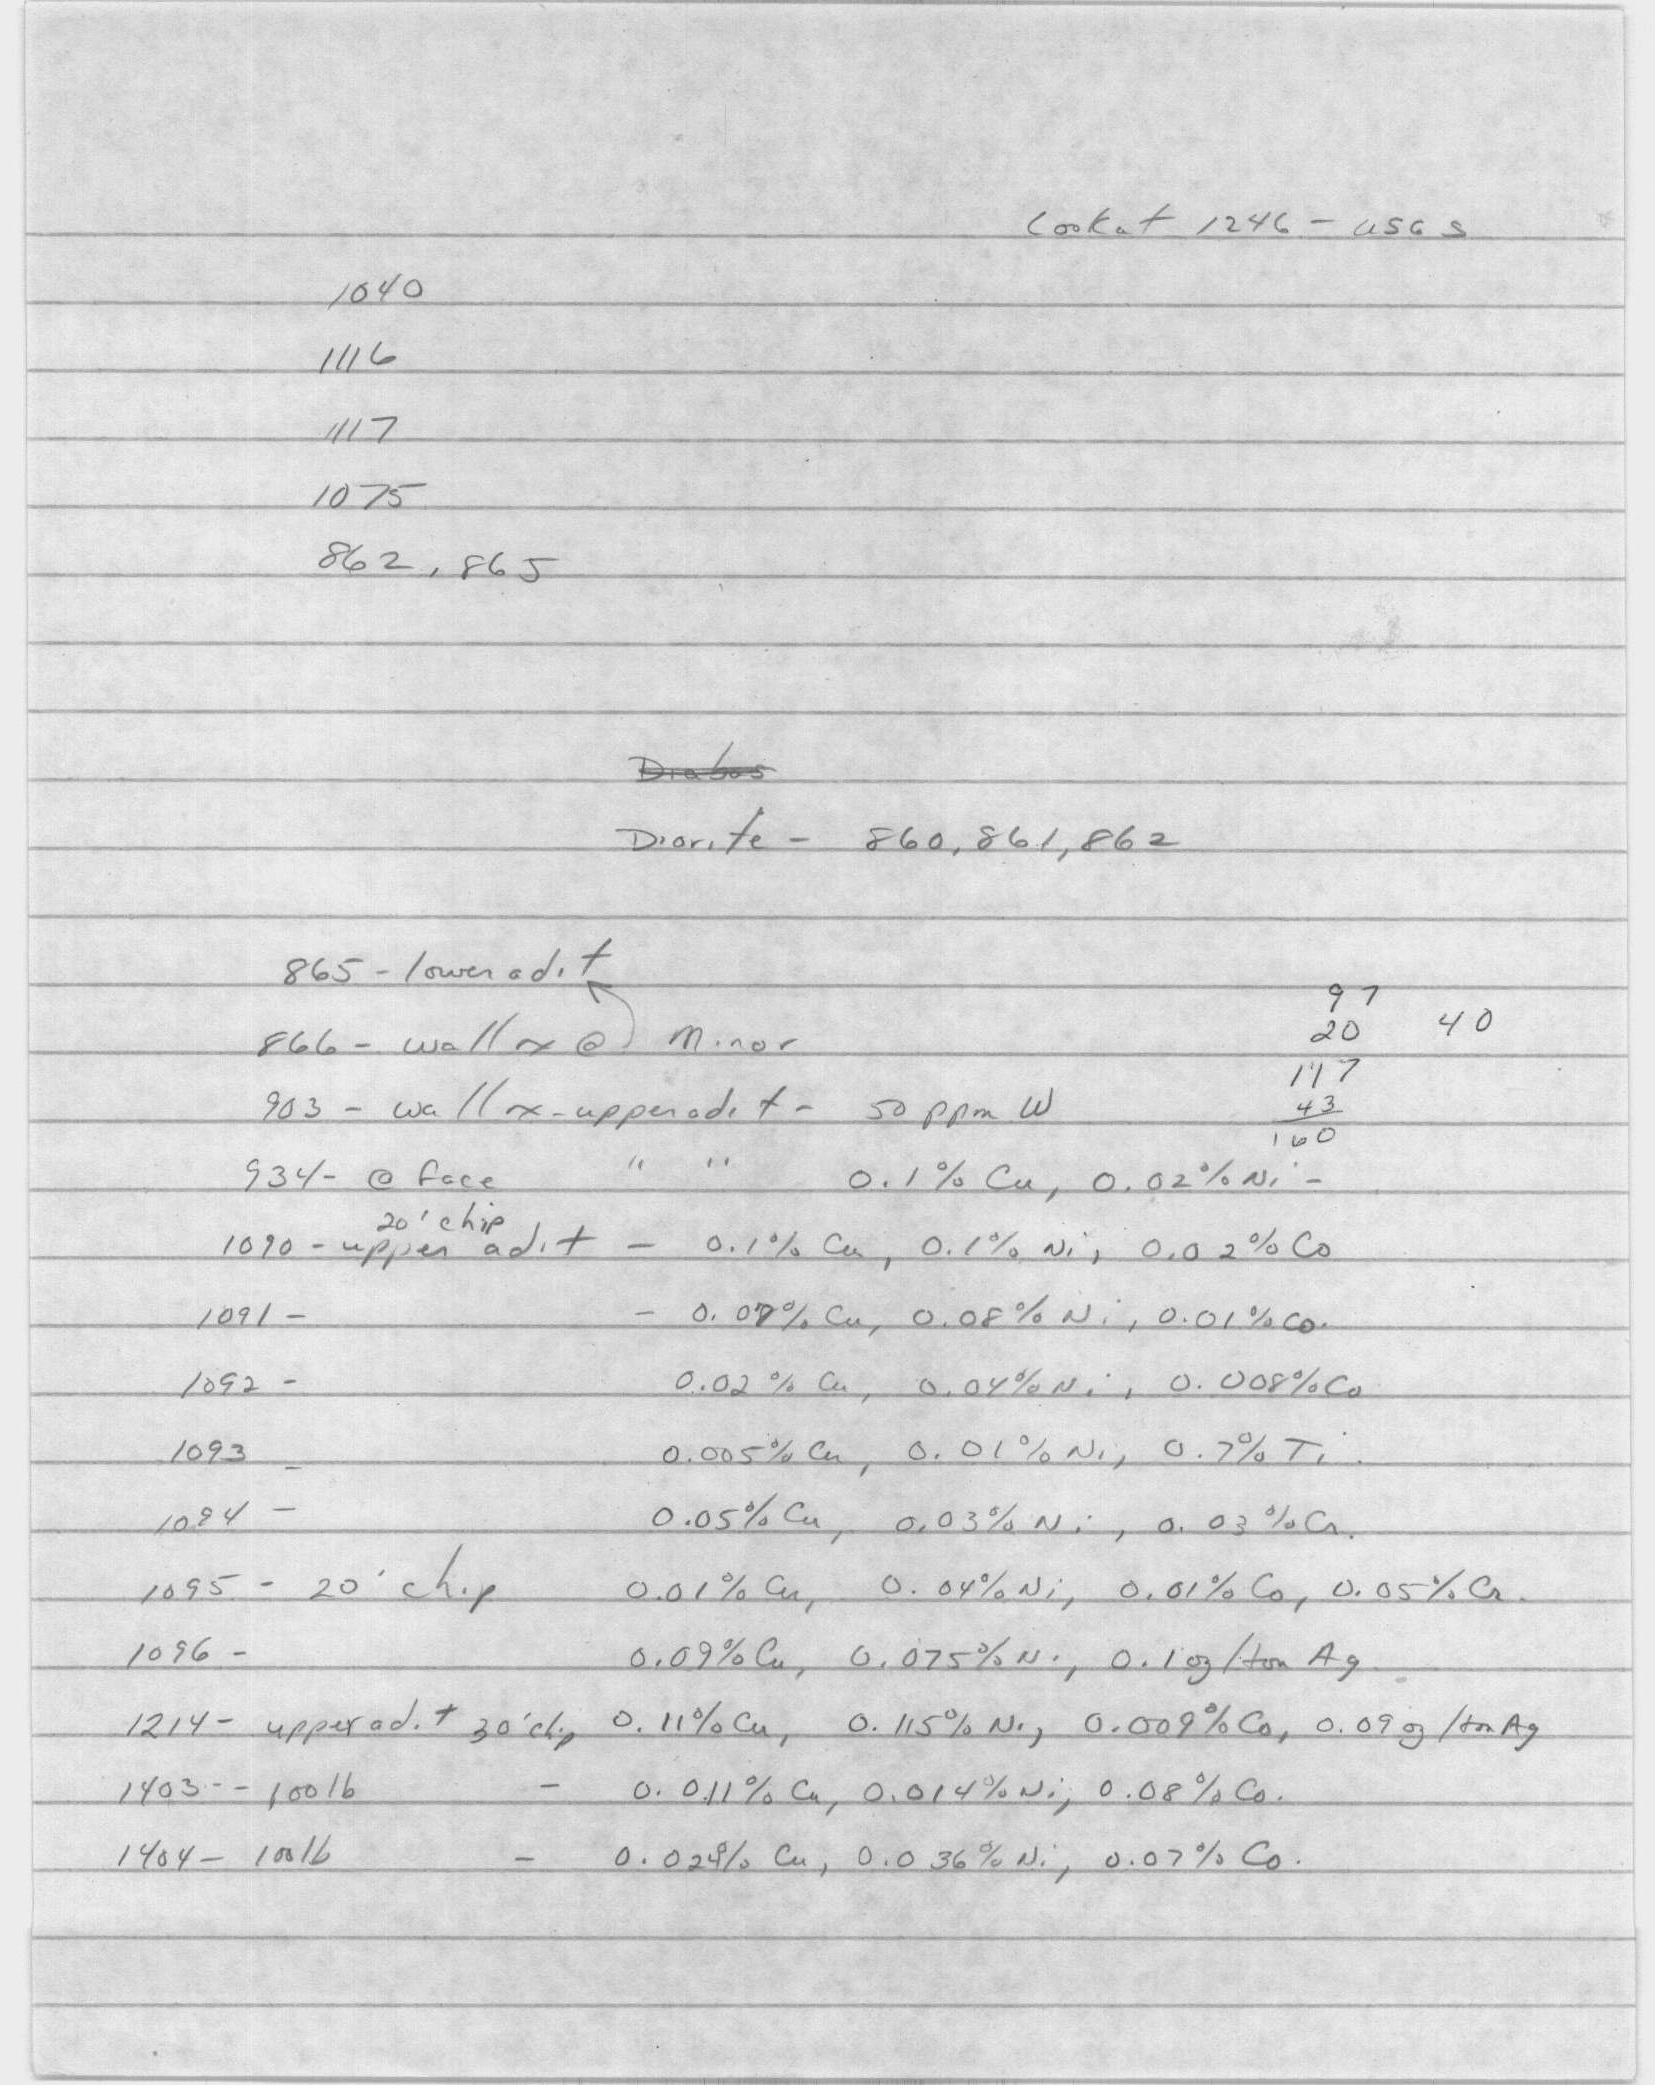 Look at 1246 - USGS
1040
1116
1117
1075
862, 865
Diabas
Diorite - 860, 861, 862
865 - lower adit
97
20 40
866 - wall rx @ Minor
117
903 - wall rx - upper adit - 50 ppm W
43
160
934 - @ face " " 0.1% Cu, 0.02% Ni -
20' chip
1090 - upper adit - 0.1% Cu, 0.1% Ni, 0.02% Co
1091 - - 0.07% Cu, 0.08% Ni, 0.01% Co.
1092 - 0.02% Cu, 0.04% Ni, 0.008% Co
1093 - 0.005% Cu, 0.01% Ni, 0.7% Ti.
1094 - 0.05% Cu, 0.03% Ni, 0.03% Cr.
1095 - 20' chip 0.01% Cu, 0.04% Ni, 0.01% Co, 0.05% Cr.
1096 - 0.09% Cu, 0.075% Ni, 0.1 oz/ton Ag
1214 - upper adit 30' chip 0.11% Cu, 0.115% Ni, 0.009% Co, 0.09 oz/ton Ag
1403 - - 100 lb - 0.011% Cu, 0.014% Ni, 0.08% Co.
1404 - 100 lb - 0.024% Cu, 0.036% Ni, 0.07% Co.